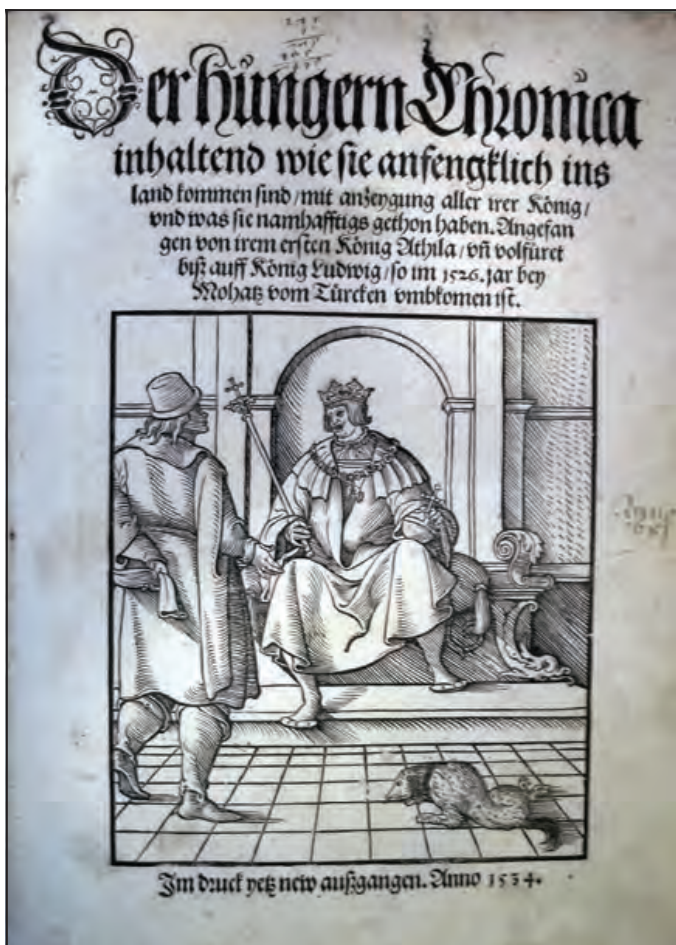 Der hüngern Chronica
inhaltend wie sie anfengklich ins
land kommen sind / mit anzeygung aller irer König /
vnd was sie namhafftigs gethon haben. Angefan
gen von irem ersten König Athila / vñ volfüret
biß auff König Ludwig / so im 1526. jar bey
Mohatz vom Türcken vmbkomen ist.
Im druck yetz new außgangen. Anno 1534.